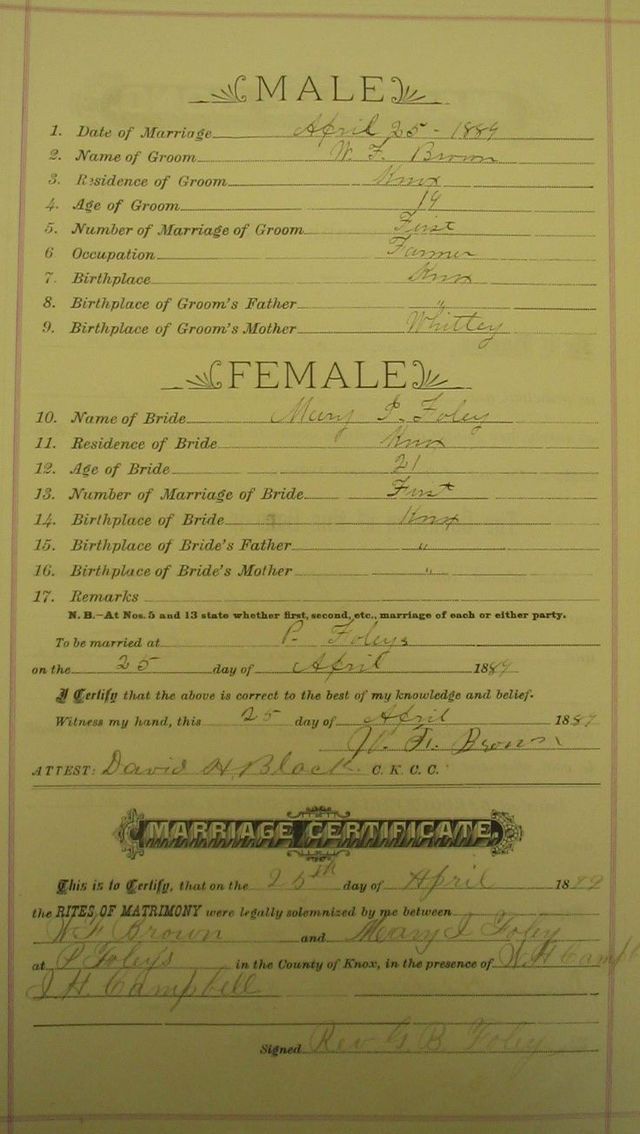 MALE
1. Date of Marriage April 25 - 1889
2. Name of Groom W. F. Brown
3. Residence of Groom Knox
4. Age of Groom 19
5. Number of Marriage of Groom First
6 Occupation Farmer
7. Birthplace Knox
8. Birthplace of Groom's Father "
9. Birthplace of Groom's Mother Whitley
FEMALE
10. Name of Bride Mary I. Foley
11. Residence of Bride Knox
12. Age of Bride 21
13. Number of Marriage of Bride First
14. Birthplace of Bride Knox
15. Birthplace of Bride's Father "
16. Birthplace of Bride's Mother "
17. Remarks
N. B.—At Nos. 5 and 13 state whether first, second, etc., marriage of each or either party.
To be married at P. Foleys
on the 25 day of April 1889
I Certify that the above is correct to the best of my knowledge and belief.
Witness my hand, this 25 day of April 1889
W. F. Brown
ATTEST: David H. Black C. K. C. C.
MARRIAGE CERTIFICATE.
This is to Certify, that on the 25th day of April 1889
the RITES OF MATRIMONY were legally solemnized by me between
W F Brown and Mary I Foley
at P Foleys in the County of Knox, in the presence of W H Campb
I. H. Campbell
Signed Rev G. B. Foley